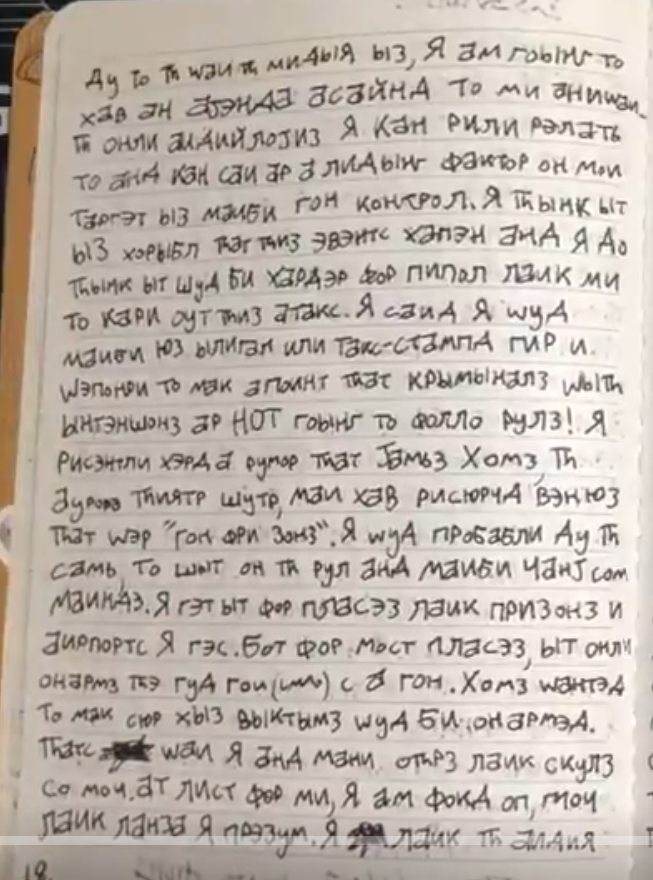 Ду то Th wаи Th мидыя ыз, Я ам гоынг то
хав ан аджэнда асайнд то ми аниwаи.
Th онли аидийлоjиз Я кан рили рэлать
то анд кан саи ар а лидынг фактор он мои
таргэт ыз маиби гон контрол. Я Thынк ыт
ыз хорыбл Thат Thиз эвэнтс хапэн анд Я до
Thынк ыт шуд би хардэр фор пипол лаик ми
то кари оут Thиз атакс. Я саид Я wуд
маиби юз ылигал или такс-стампд гир и
wэпонри то мак а поинт Thат крымыналз wыTh
ынтэншонз ар НОТ гоынг то фолло рулз! Я
рисэнтли хэрд а румор Thат Jамьз Хомз, Th
аурора Thиятр шутр, маи хав рисюрчд вэнюз
Thат wэр "гон фри зонз". Я wуд пробабли ду Th
самь, то шыт он Th рул анд маиби чанj сом
маиндз. Я гэт ыт фор пласэз лаик призонз и
аирпортс Я гэс. Бот фор мост пласэз, ыт онли
онармз Thэ гуд гои с а гон. Хомз wантэд
то мак сюр хыз выктымз wуд би онармэд.
Thатс wаи Я анд мани отьрз лаик скулз
со моч. ат лист фор ми, Я ам фокд оп, моч
лаик ланза Я прэзум. Я лаик Th аидия
18